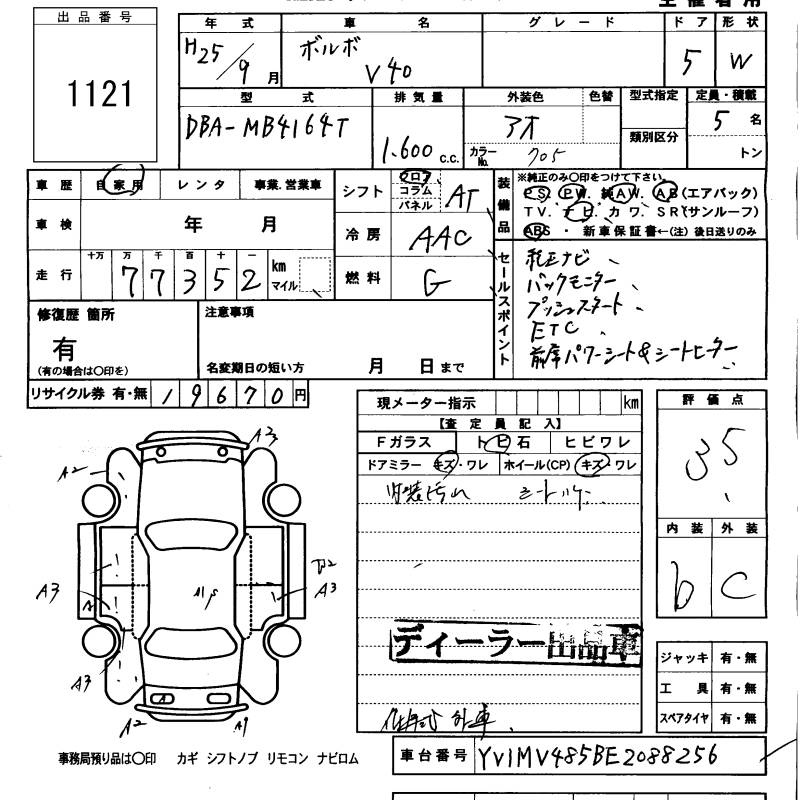 出品番号
1121
年式 車名 グレード ドア 形状
H25/9月 ボルボ V40 5 W
型式 排気量 外装色 色替 型式指定 定員・積載
DBA-MB4164T 1.600 c.c. アオ カラーNo. 705 類別区分 5名 トン
車歴 自家用 レンタ 事業.営業車
車検 年 月
走行 十万 万 千 百 十 一
77352 km マイル
シフト フロア コラム パネル AT
冷房 AAC
燃料 G
装備品 ※純正のみ○印をつけて下さい。
PS. PW. 純AW. AB(エアバック)
TV. ナビ. カワ. SR(サンルーフ)
ABS ・ 新車保証書←(注) 後日送りのみ
セールスポイント
純正ナビ
バックモニター
プッシュスタート
ETC
前席パワーシート&シートヒーター
修復歴 箇所
有
(有の場合は○印を)
注意事項
名変期日の短い方 月 日まで
リサイクル券 有・無 19670円
現メーター指示 km
【査定員記入】
Fガラス トビ石 ヒビワレ
ドアミラー キズ・ワレ ホイール(CP) キズ・ワレ
内装汚れ
評価点
35
内装 外装
b C
ディーラー出品車
ジャッキ 有・無
工具 有・無
スペアタイヤ 有・無
A3
A2
A3
A3
A3
A2
A1
事務局預り品は○印 カギ シフトノブ リモコン ナビロム
車台番号 YV1MV485BE2088256